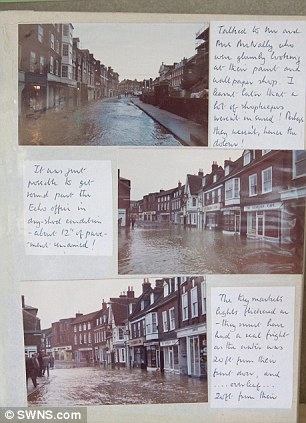 Talked to Mr and
Mrs McNally who
were glumly looking
at their paint and
wallpaper shop. I
learnt later that a
lot of shopkeepers
weren't insured! Perhaps
they weren't, hence the
dolour!
It was just
possible to get
round past the
Echo office in
dry-shod condition
- about 12" of pave-
ment unrained!
The Key markets
lights flickered on
- they must have
had a real fright
as the water was
20ft from their
front door, and
.... overleaf...
20ft from their
© SWNS.com